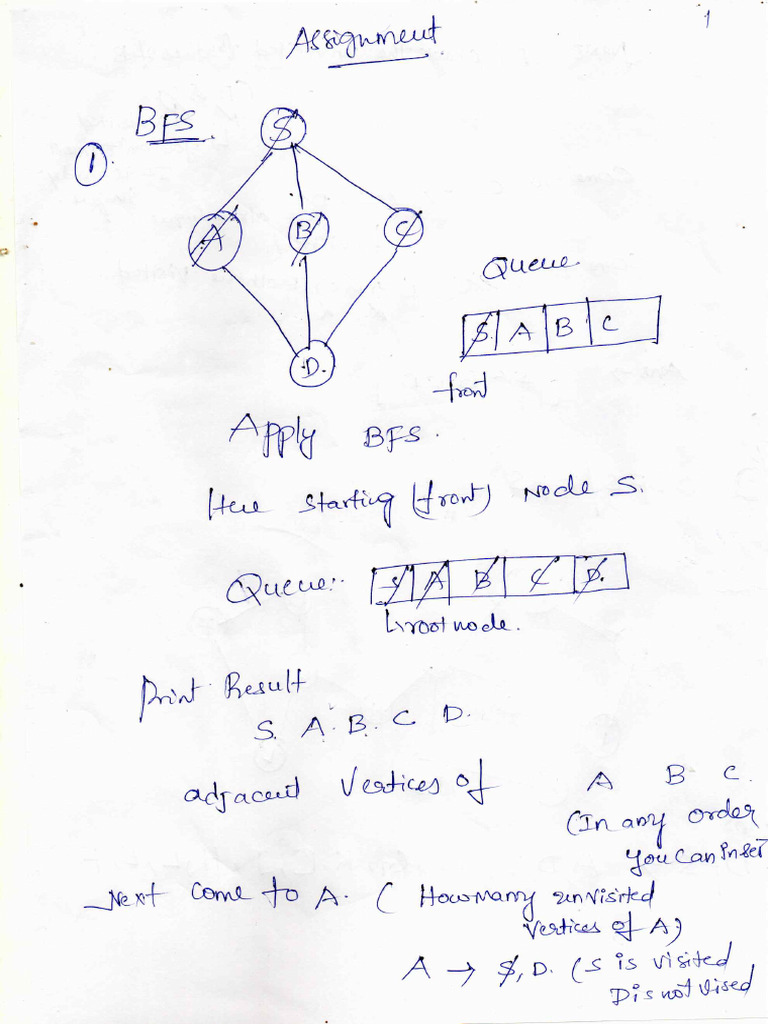 1
Assignment
BFS.
1.
S
A B C
Queue
S. A B C
D.
front
Apply BFS.
Here starting (front) Node S.
Queue:- S A B C D.
root node.
Print Result
S. A. B. C D.
adjacent Vertices of A B C.
(In any order
you can inset
Next come to A. ( How many unvisited
vertices of A)
A → S, D. (S is visited
D is not vised